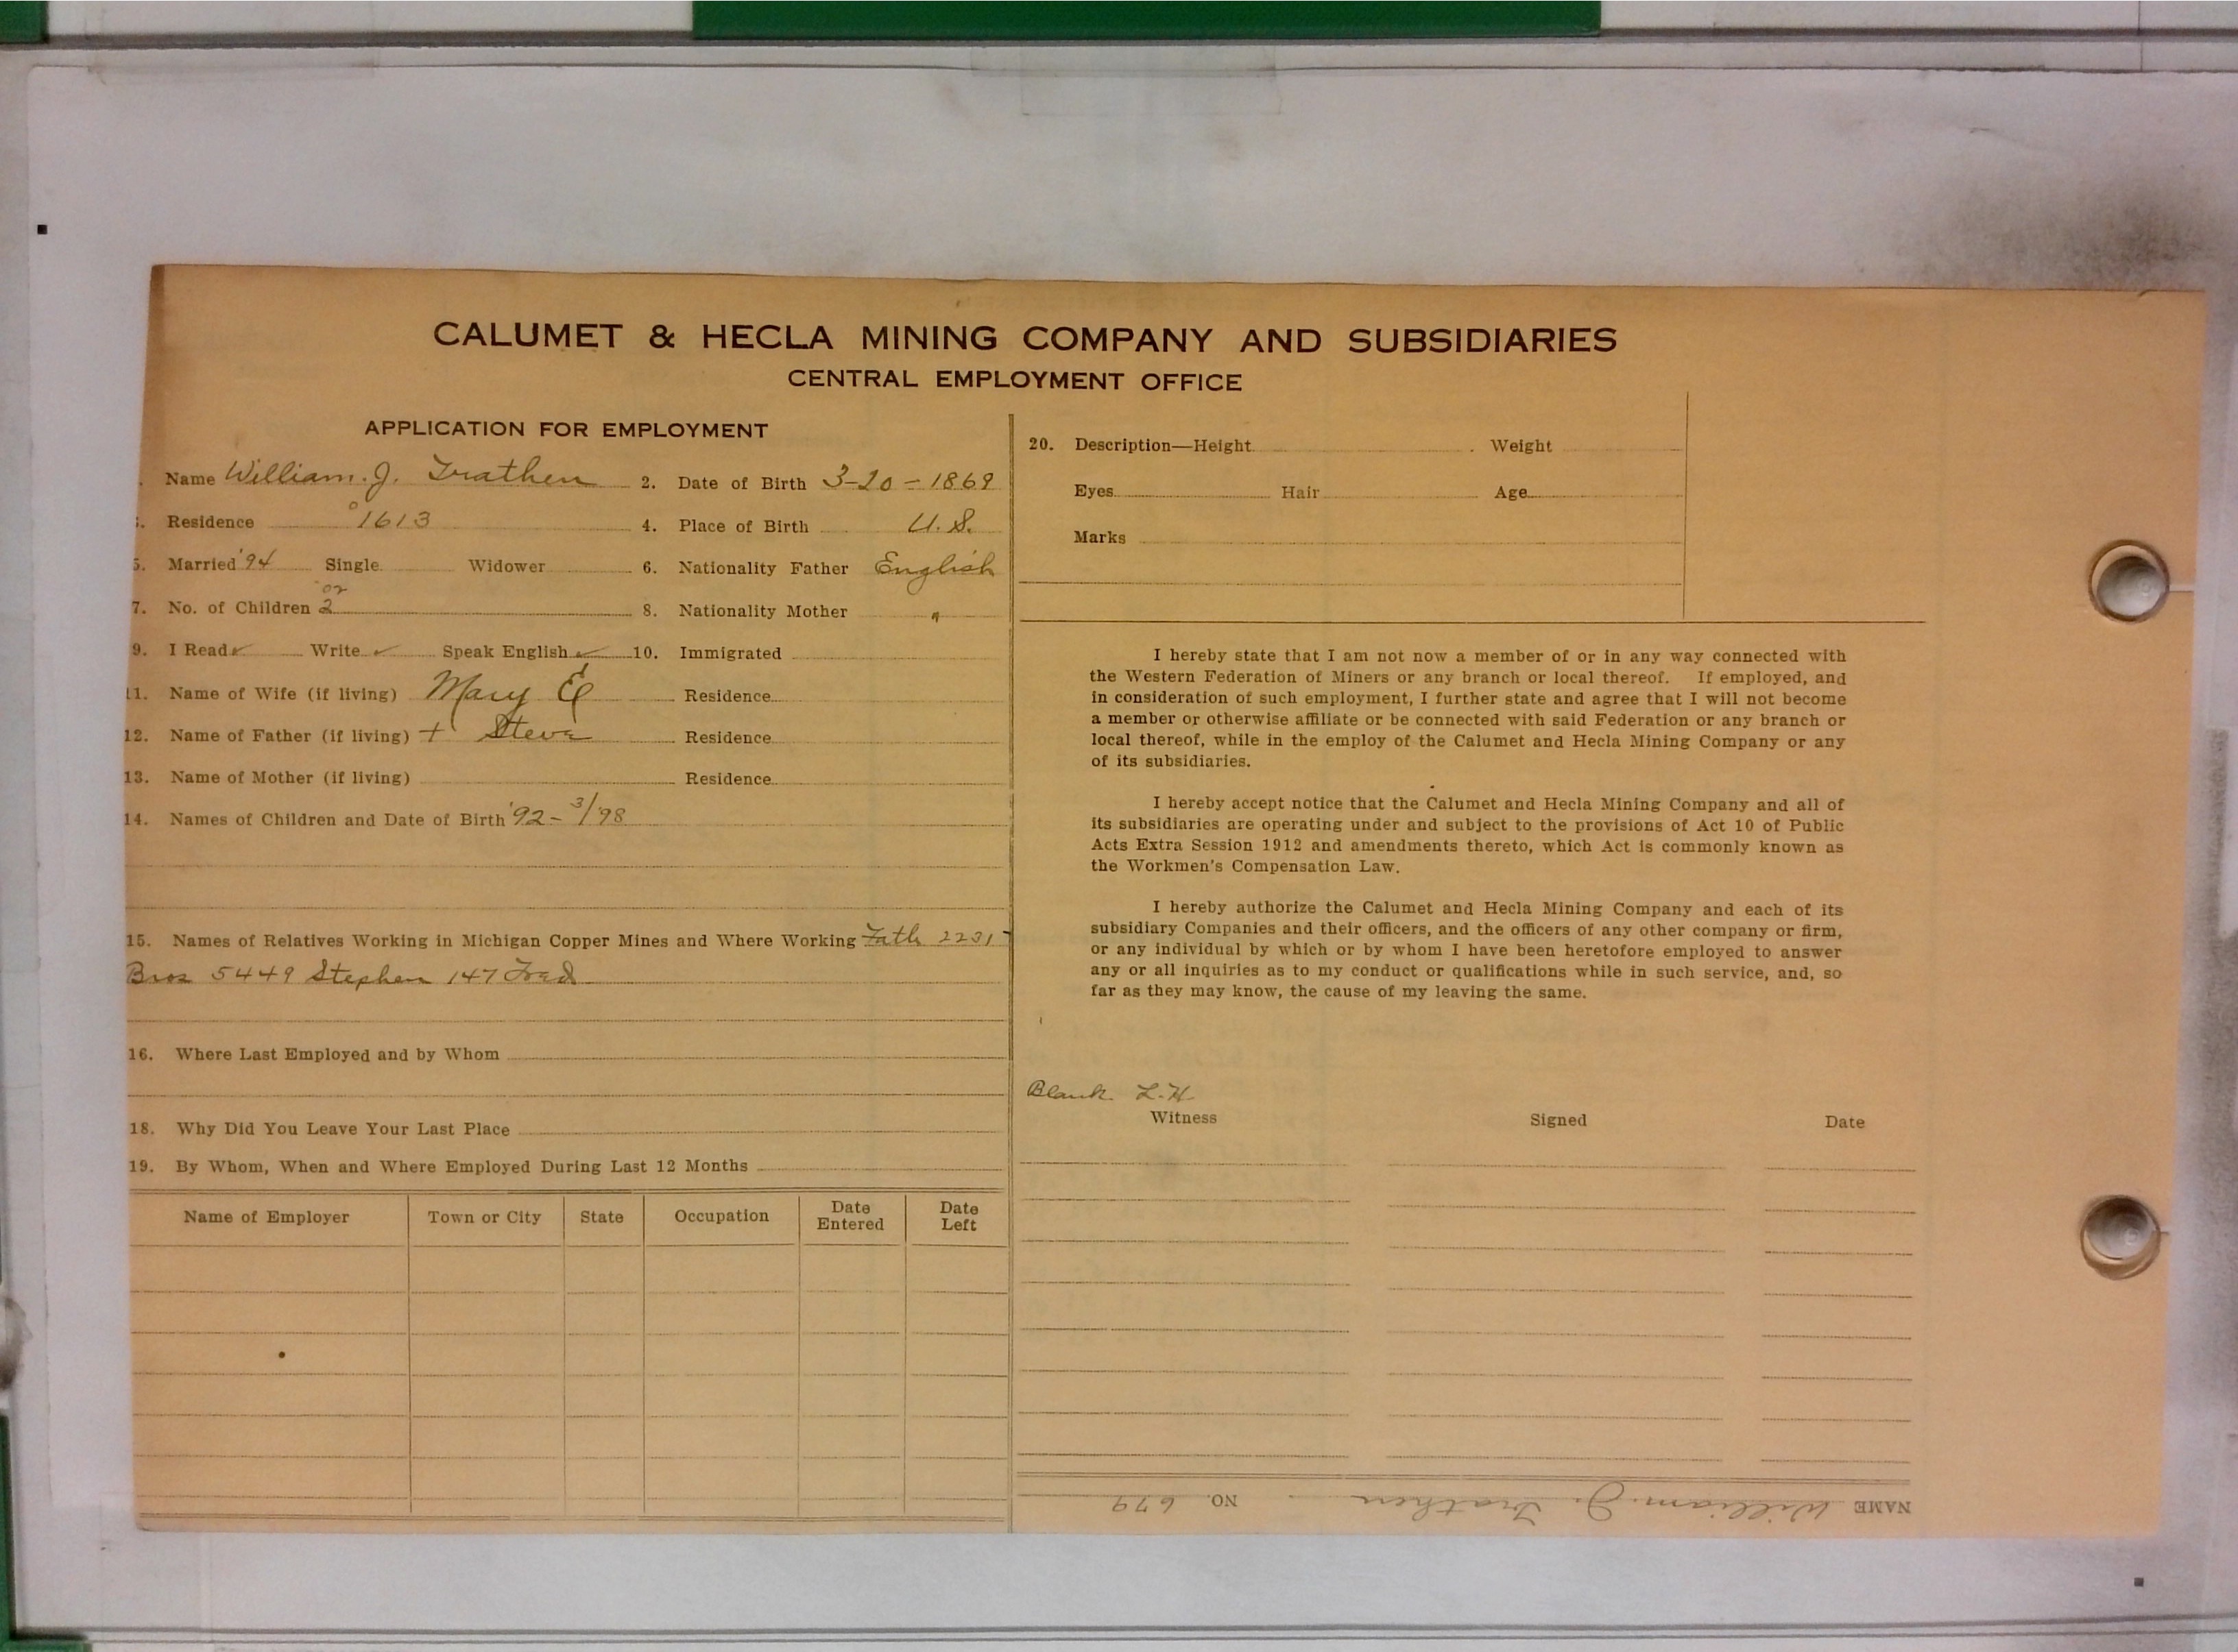 CALUMET & HECLA MINING COMPANY AND SUBSIDIARIES
CENTRAL EMPLOYMENT OFFICE
APPLICATION FOR EMPLOYMENT
Name William. J. Trathen 2. Date of Birth 3-20-1869
Residence 1613 4. Place of Birth U.S.
5. Married '94 Single Widower 6. Nationality Father English
7. No. of Children 2 8. Nationality Mother "
9. I Read ✓ Write ✓ Speak English ✓ 10. Immigrated
11. Name of Wife (if living) Mary E Residence
12. Name of Father (if living) + Steve Residence
13. Name of Mother (if living) Residence
14. Names of Children and Date of Birth '92- 3/'98
15. Names of Relatives Working in Michigan Copper Mines and Where Working Fath 2231
Bros 5449 Stephen 147 Fred
16. Where Last Employed and by Whom
18. Why Did You Leave Your Last Place
19. By Whom, When and Where Employed During Last 12 Months
Name of Employer Town or City State Occupation Date Entered Date Left
20. Description—Height Weight
Eyes Hair Age
Marks
I hereby state that I am not now a member of or in any way connected with
the Western Federation of Miners or any branch or local thereof. If employed, and
in consideration of such employment, I further state and agree that I will not become
a member or otherwise affiliate or be connected with said Federation or any branch or
local thereof, while in the employ of the Calumet and Hecla Mining Company or any
of its subsidiaries.
I hereby accept notice that the Calumet and Hecla Mining Company and all of
its subsidiaries are operating under and subject to the provisions of Act 10 of Public
Acts Extra Session 1912 and amendments thereto, which Act is commonly known as
the Workmen's Compensation Law.
I hereby authorize the Calumet and Hecla Mining Company and each of its
subsidiary Companies and their officers, and the officers of any other company or firm,
or any individual by which or by whom I have been heretofore employed to answer
any or all inquiries as to my conduct or qualifications while in such service, and, so
far as they may know, the cause of my leaving the same.
Blank L.H.
Witness Signed Date
NAME William J. Trathen NO. 679